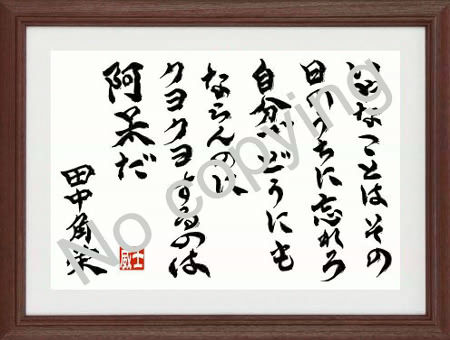 いやなことはその
日のうちに忘れろ
自分でどうにも
ならんのに
クヨクヨするのは
阿呆だ
田中角栄
No copying